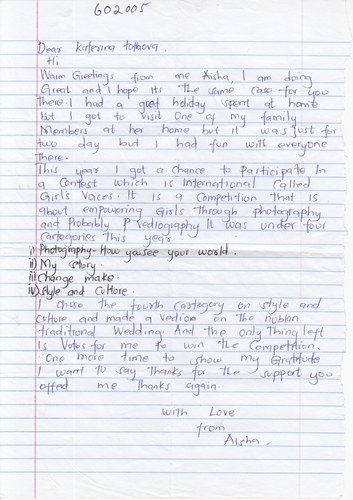 602005
Dear Katerina
Hi
Warm Greetings from me Aisha, I am doing
Great and I hope its the same case for you
there. I had a good holiday spent at home
but I got to visit One of my family
Members at her home but it was just for
two day but I had fun with everyone
there.
This year I got a chance to Participate In
a Contest which is International Called
Girl's Voices. It is a Competition that is
about empowering Girls Through photography
and Probably P vediography It was under four
Cartegories This year.
i) Photography - How you see your world.
ii) My story.
iii) Change make.
iv) Style and Culture.
I chose the fourth Cartegory on style and
Culture and made a vedion on the nubian
traditional Wedding. And the only Thing left
Is Votes for me to win the Competition.
One more time to show my Gratitude
I want to say Thanks for the support you
offed me Thanks again
With Love
from
Aisha.